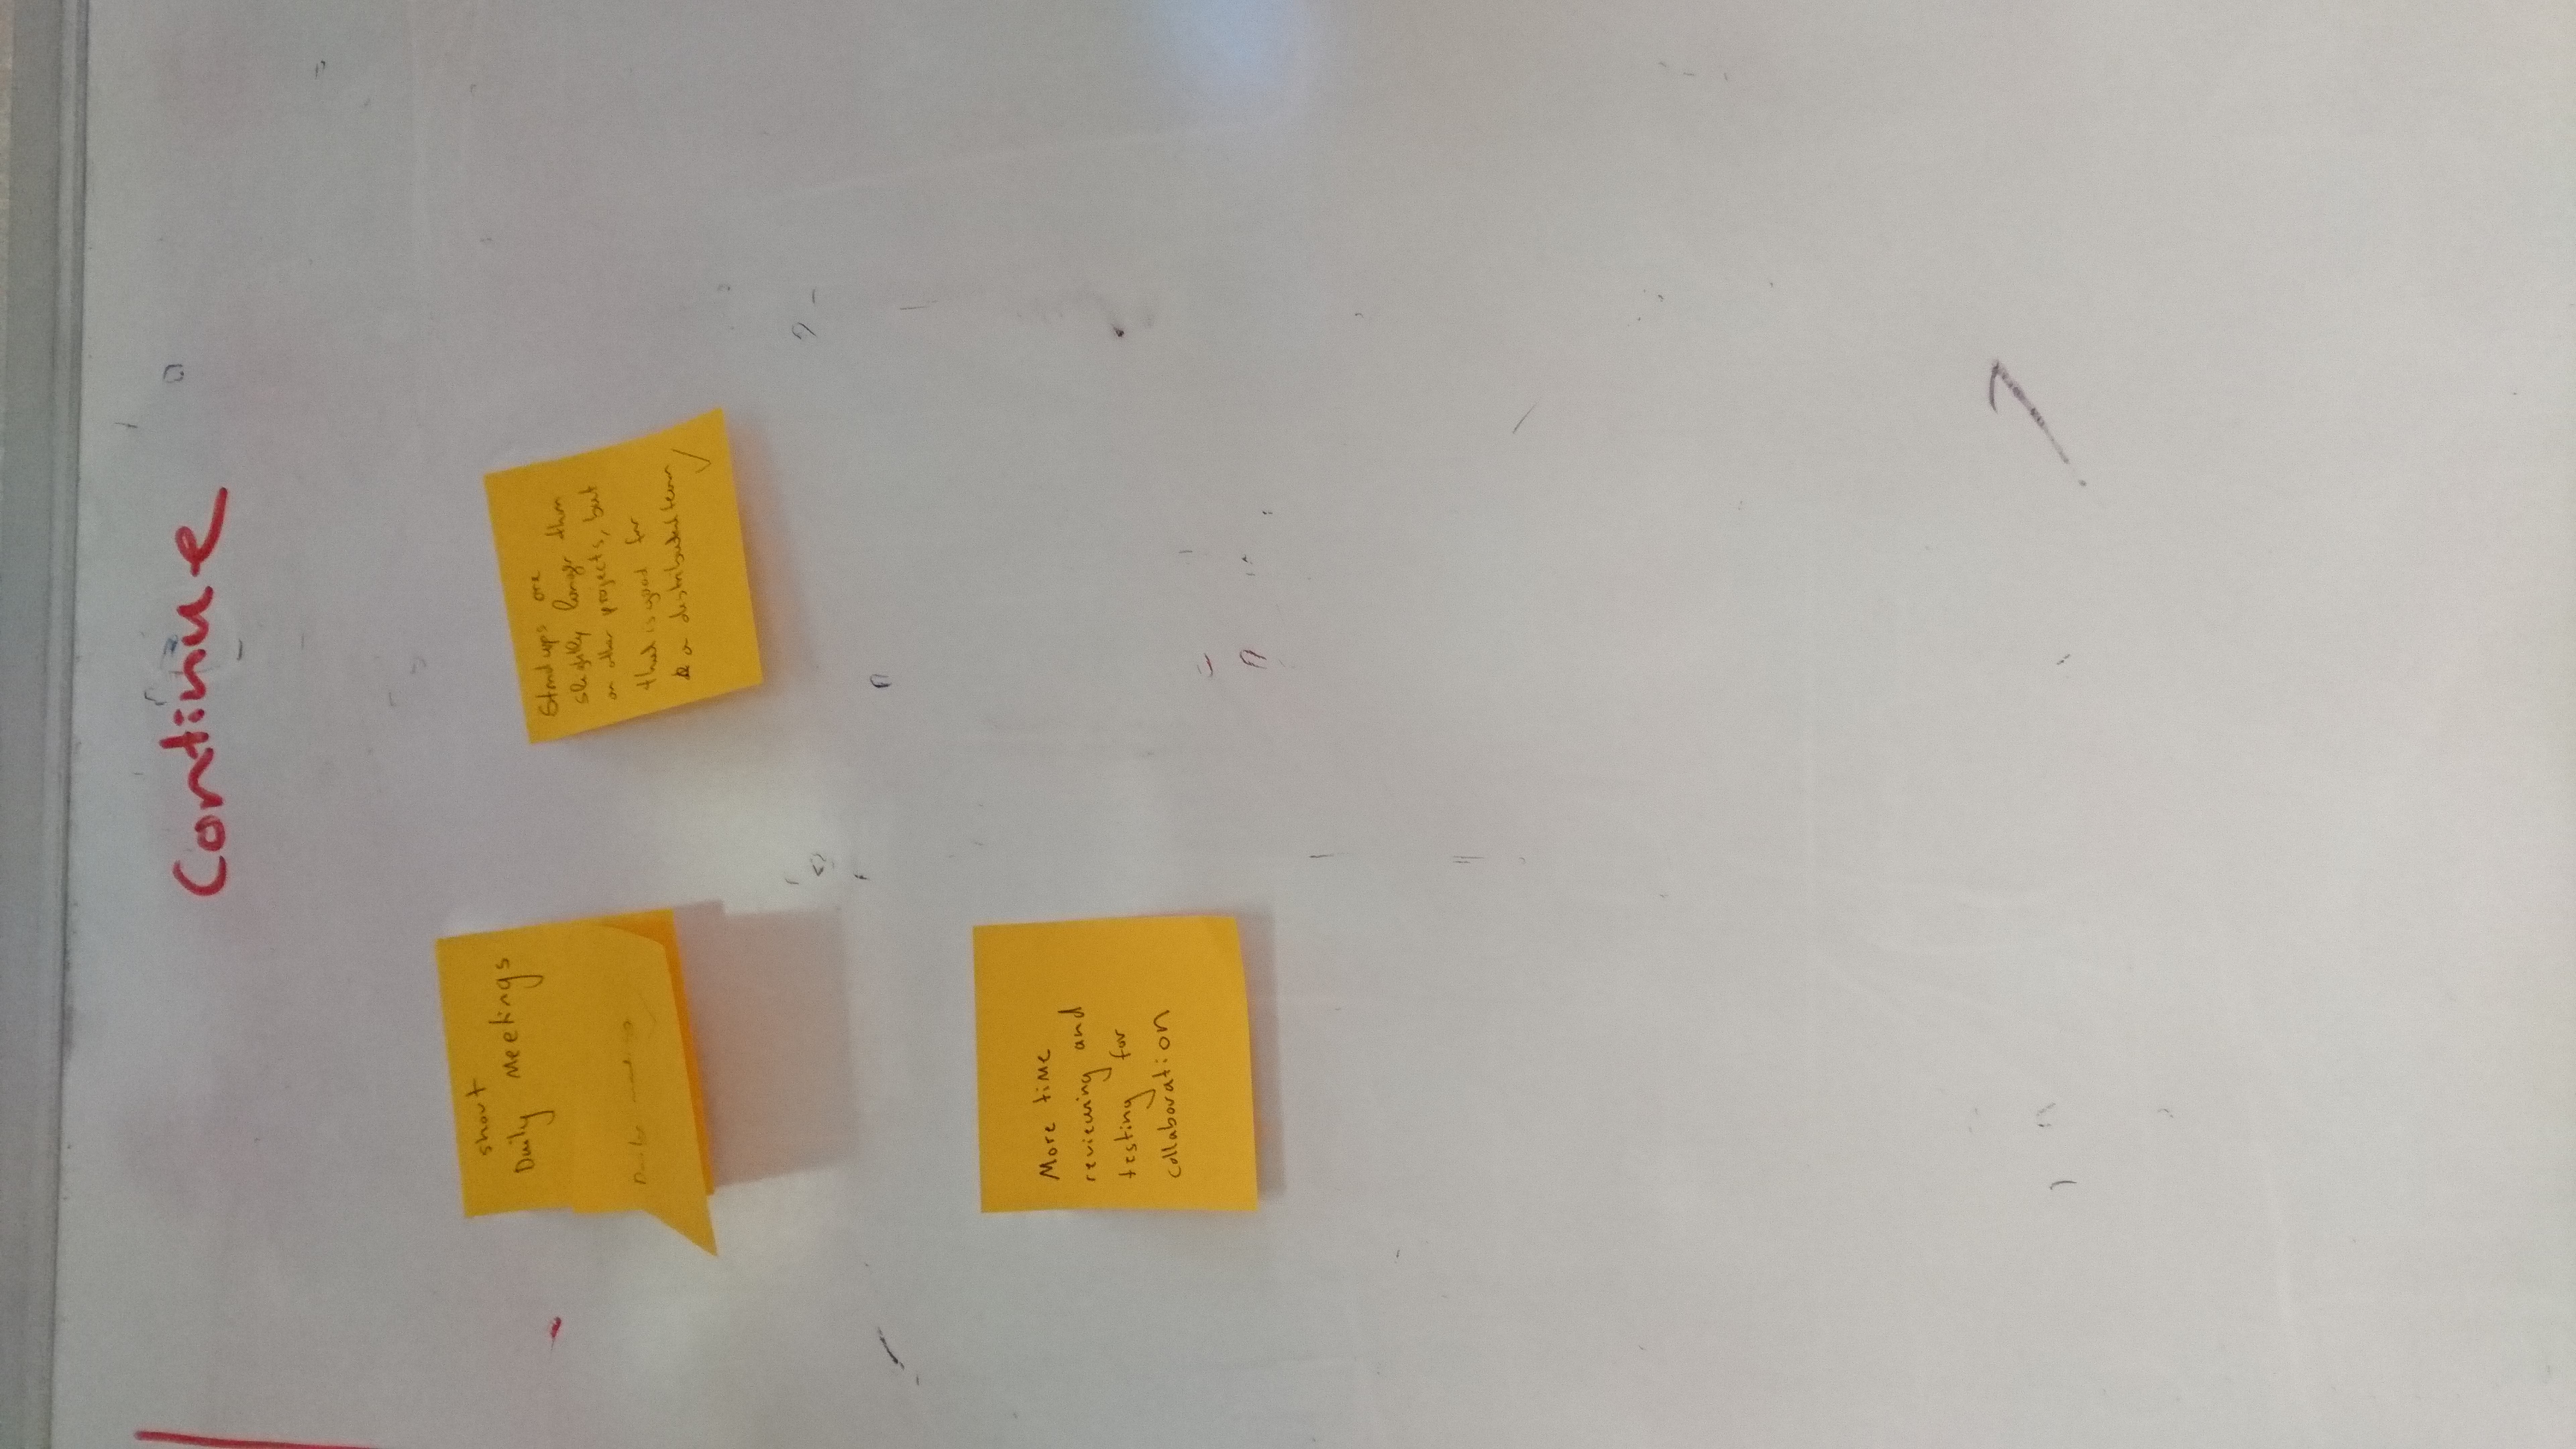 Continue
short
Daily Meetings
Daily meeting
Standups are
slightly longer than
on other projects, but
that is good for
a distributed team
More time
reviewing and
testing for
collaboration